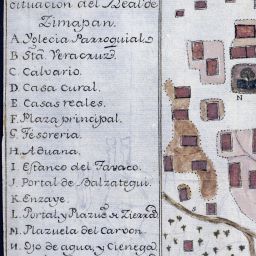 situacion del Real de
Zimapan.
A. Yglecia Parroquial
B Sta. Veracruz
C. Calvario.
D Casa Cural.
E Casas reales.
F. Plaza principal.
G. Tesoreria.
H. Aduana.
I. Estanco del Tavaco.
J. Portal de Balzategui.
K. Enzaye.
L. Portal y Plazus.
M. Plazuela del Carvon.
N. Ojo de agua, y Cienega
N